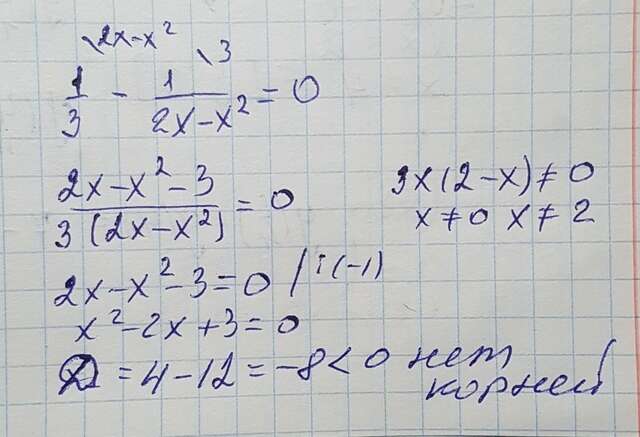 \2x-x² \3
1/3 - 1/(2x-x²) = 0
(2x-x²-3)/(3(2x-x²)) = 0
3x(2-x)≠0
x≠0 x≠2
2x-x²-3=0 /:(-1)
x²-2x+3=0
D = 4-12 = -8 < 0 нет
корней